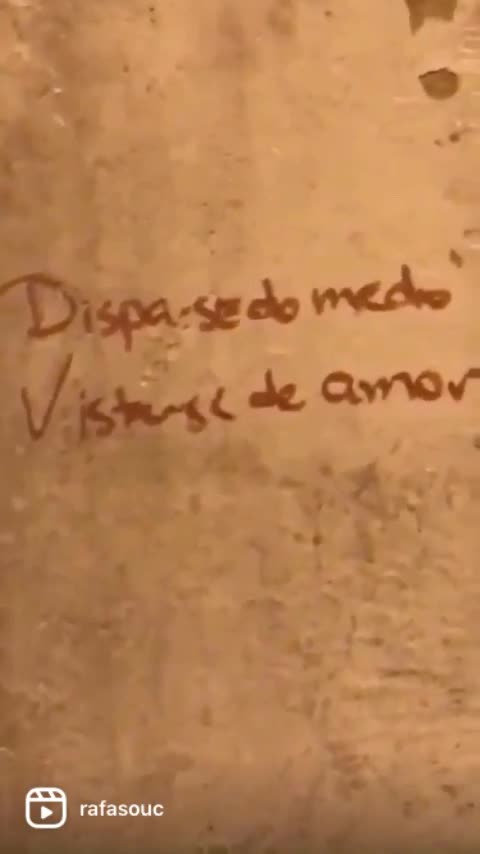 Dispa-se do medo
Vista-se de amor
rafasouc